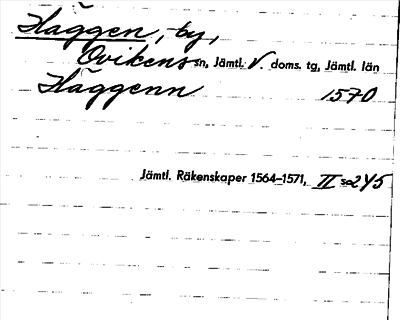 Häggen, by,
Ovikens sn, Jämtl. V. doms. tg, Jämtl. län
Häggenn 1570
Jämtl. Räkenskaper 1564–1571, II s. 245